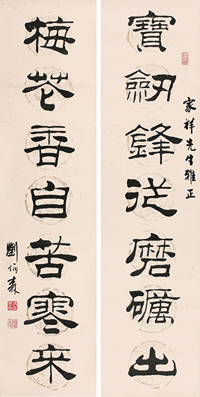 家祥先生雅正
寶劒鋒從磨礪出
梅花香自苦寒來
劉炳森